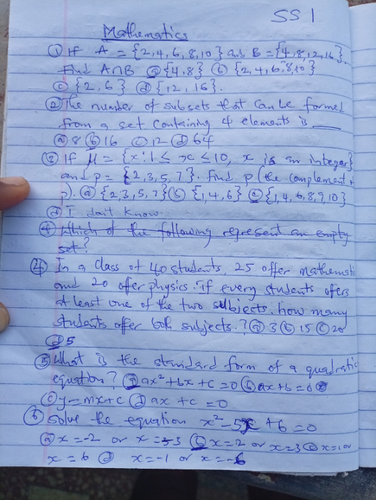 SS 1
Mathematics
① If A = {2,4,6,8,10} and B = {4,8,12,16}.
Find A∩B ⓐ {4,8} ⓑ {2,4,6,8,10}
ⓒ {2,6} ⓓ {12,16}.
② The number of subsets that can be formed
from a set containing 4 elements is ____
ⓐ 8 ⓑ 16 ⓒ 12 ⓓ 64
③ If μ = {x: 1 ≤ x ≤ 10, x is an integer}
and p = {2,3,5,7}. Find p (the complement
). ⓐ {2,3,5,7} ⓑ {1,4,6} ⓒ {1,4,6,8,9,10}
ⓓ I don't know
④ Which of the following represent an empty
set?
④ In a class of 40 students, 25 offer mathemati
and 20 offer physics. If every students offers
at least one of the two subjects. how many
students offer both subjects.? ⓐ 3 ⓑ 15 ⓒ 20
ⓓ 5
⑤ What is the standard form of a quadratic
equation? ⓐ ax² + bx + c = 0 ⓑ ax + b = 0
ⓒ y = mx + c ⓓ ax + c = 0
⑥ Solve the equation x² - 5x + 6 = 0
ⓐ x = -2 or x = -3 ⓑ x = 2 or x = 3 ⓒ x = 1 or
x = 6 ⓓ x = -1 or x = -6